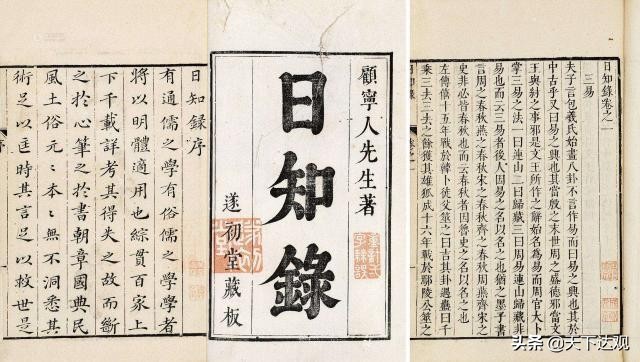 日知錄序
有通儒之學有俗儒之學學者
將以明體適用也綜貫百家上
下千載詳考其得失之故而斷
之於心筆之於書朝章國典民
風土俗元〻本〻無不洞悉其
術足以匡時其言足以救世是
序
顧寧人先生著
日知錄
遂初堂藏板
日知錄卷之一
三易
夫子言包羲氏始畫八卦不言作易而曰易之興也其於
中古乎又曰易之興也其當殷之末世周之盛德邪當文
王與紂之事邪是文王所作之辭始名為易而周官大卜
掌三易之法一曰連山二曰歸藏三曰周易連山歸藏非
易也而云三易者後人因易之名以名之也猶之墨子書
言周之春秋燕之春秋宋之春秋齊之春秋周燕齊宋之
史非必皆春秋也而云春秋者因魯史之名以名之也
左傳僖十五年戰於韓卜徒父筮之曰吉其卦遇蠱曰千
乘三去三去之餘獲其雄狐成十六年戰於鄢陵公筮之
日知錄
头条 @天下达观